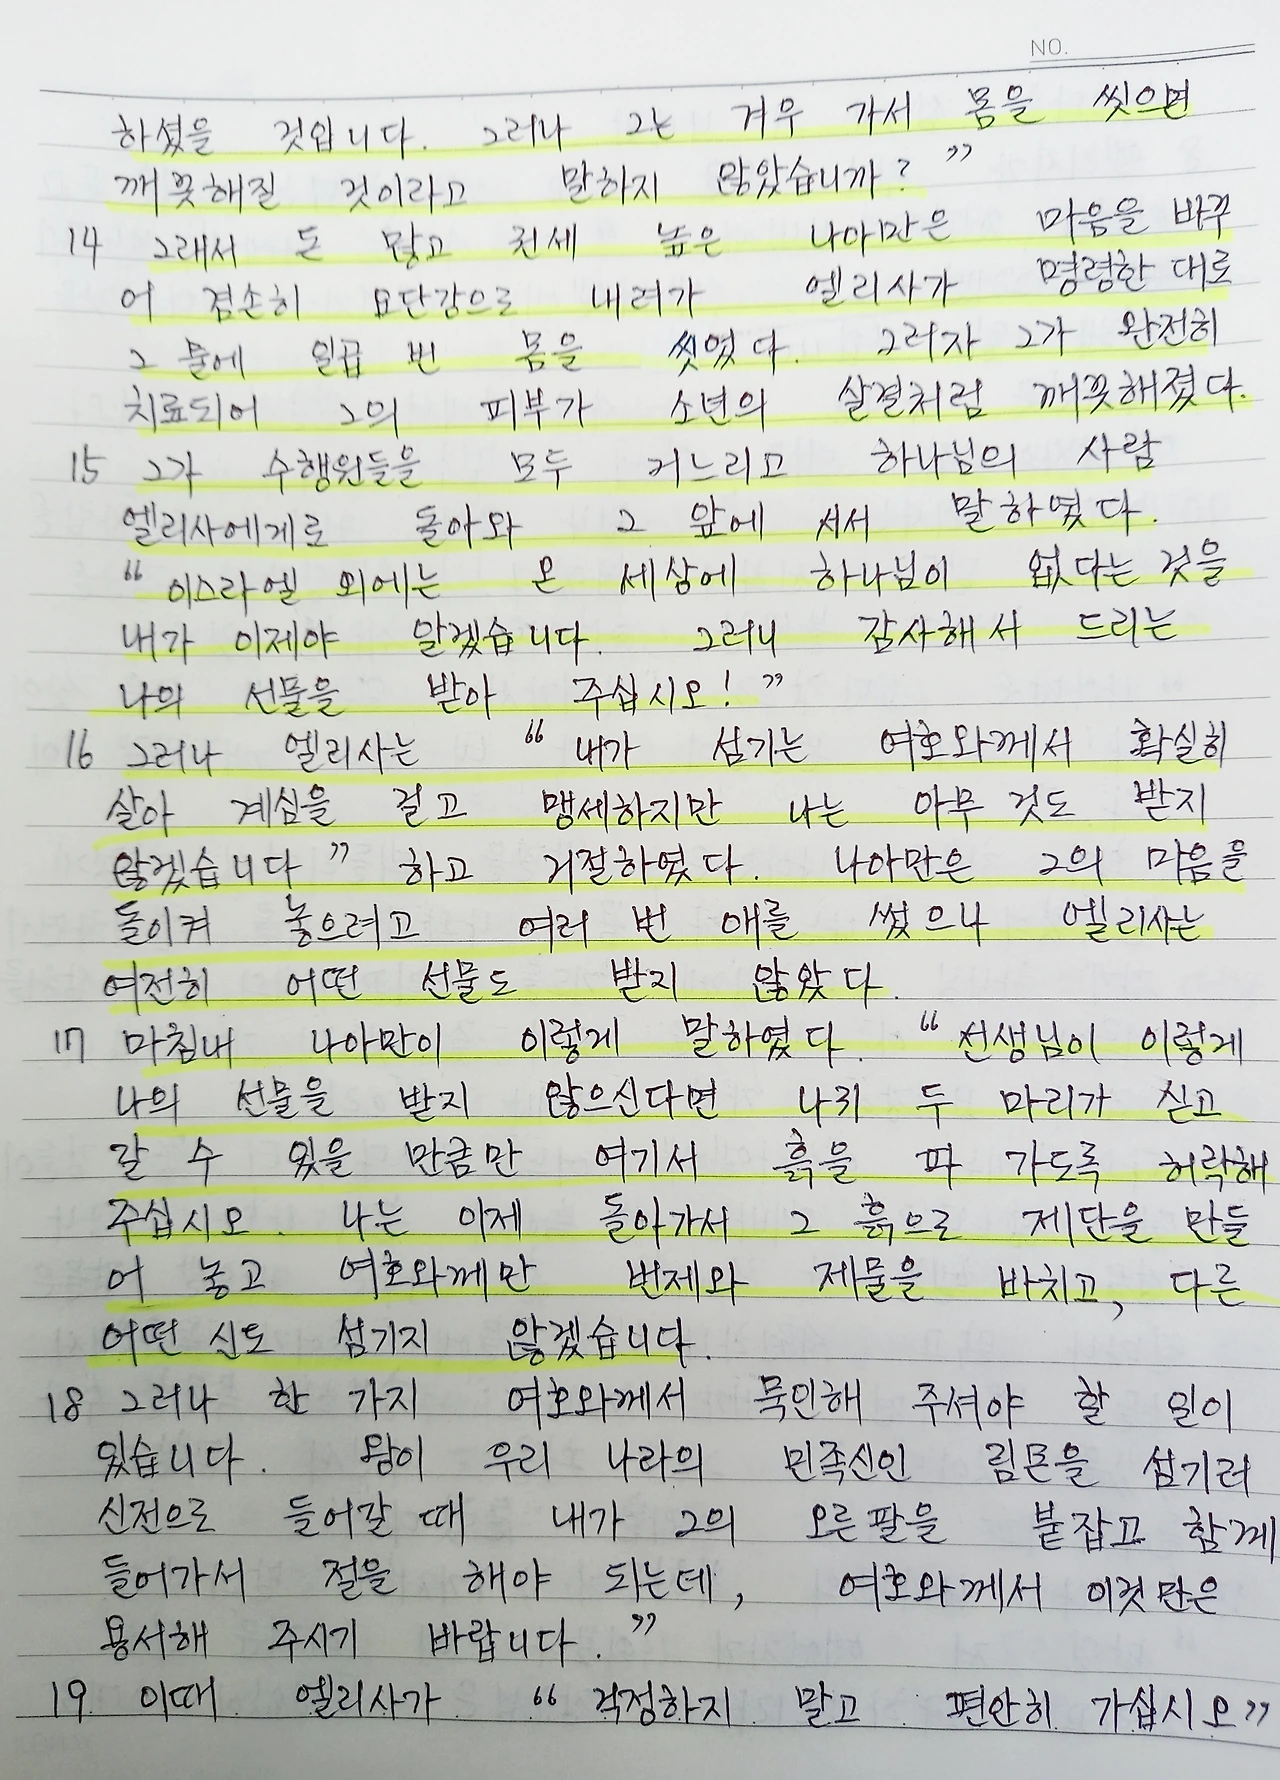 NO.
하셨을 것입니다. 그러나 그는 겨우 가서 몸을 씻으면
깨끗해질 것이라고 말하지 않았습니까? ”
14 그래서 돈 많고 권세 높은 나아만은 마음을 바꾸
어 겸손히 요단강으로 내려가 엘리사가 명령한 대로
그 물에 일곱 번 몸을 씻었다. 그러자 그가 완전히
치료되어 그의 피부가 소년의 살결처럼 깨끗해졌다.
15 그가 수행원들을 모두 거느리고 하나님의 사람
엘리사에게로 돌아와 그 앞에 서서 말하였다.
“ 이스라엘 외에는 온 세상에 하나님이 없다는 것을
내가 이제야 알겠습니다. 그러니 감사해서 드리는
나의 선물을 받아 주십시오! ”
16 그러나 엘리사는 “ 내가 섬기는 여호와께서 확실히
살아 계심을 걸고 맹세하지만 나는 아무 것도 받지
않겠습니다 ” 하고 거절하였다. 나아만은 그의 마음을
돌이켜 놓으려고 여러 번 애를 썼으나 엘리사는
여전히 어떤 선물도 받지 않았다.
17 마침내 나아만이 이렇게 말하였다. “ 선생님이 이렇게
나의 선물을 받지 않으신다면 나귀 두 마리가 싣고
갈 수 있을 만큼만 여기서 흙을 파 가도록 허락해
주십시오. 나는 이제 돌아가서 그 흙으로 제단을 만들
어 놓고 여호와께만 번제와 제물을 바치고, 다른
어떤 신도 섬기지 않겠습니다.
18 그러나 한 가지 여호와께서 묵인해 주셔야 할 일이
있습니다. 왕이 우리 나라의 민족신인 림몬을 섬기러
신전으로 들어갈 때 내가 그의 오른팔을 붙잡고 함께
들어가서 절을 해야 되는데, 여호와께서 이것만은
용서해 주시기 바랍니다. ”
19 이때 엘리사가 “ 걱정하지 말고 편안히 가십시오”